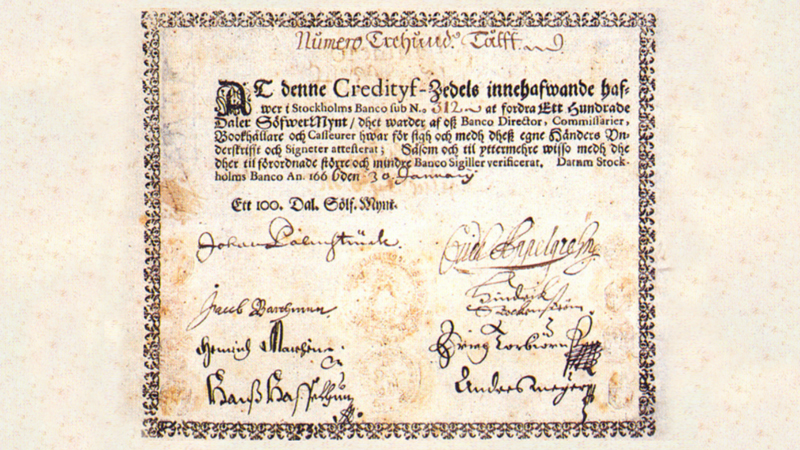 Numero Trehund.° Tålff
AT denne Credityf-Zedels innehafwande haf-
wer i Stockholms Banco sub N.o 312. at fordra Ett Hundrade
Daler SölfwerMynt / dhet warder af oß Banco Director, Commissarier,
Bookhållare och Casseurer hwar för sigh och medh dheß egne Händers Un-
derskrifft och Signeter attesterat; Såsom och til yttermehre wisso medh dhe
dher til förordnade större och mindre Banco Sigiller verificerat. Datum Stock-
holms Banco An. 1666 den 30 January
Ett 100. Dal. Sölf. Mynt.
Johan Palmstruck.
Jacob Barchman
Hindrich
Heinrich
Hanß
Andres meyer